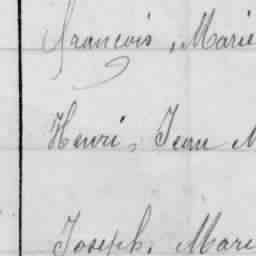 François, Marie
Henri, Jean M
Joseph, Mari